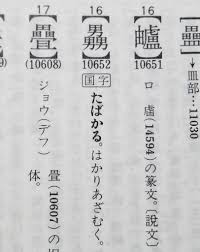 →皿部…11030
16
(10651)
ロ
(14594)の篆文。〔説文〕
16
(10652)
国字
たばかる。はかりあざむく。
17
疊
(10608)
ジョウ(デフ)
畳(10607)の
体。
9)